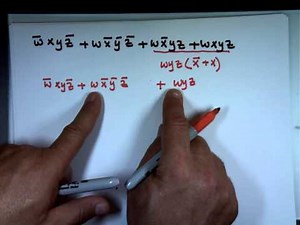 w̅xyz̅ + wx̅y̅z̅ + wx̅yz + wxyz
wyz(x̅+x)
w̅xyz̅ + wx̅y̅z̅ + wyz